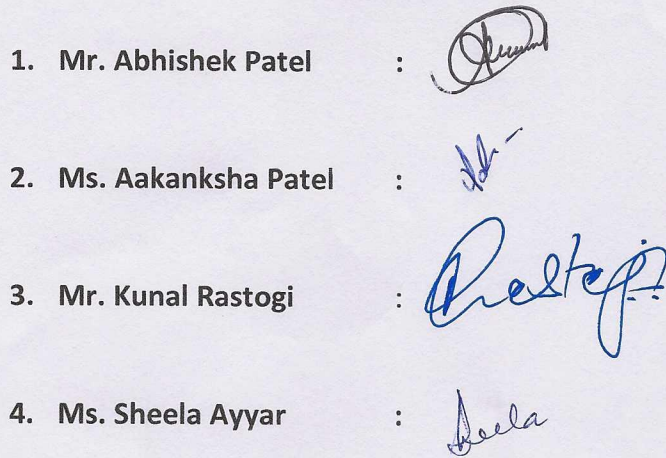 1. Mr. Abhishek Patel :
2. Ms. Aakanksha Patel :
3. Mr. Kunal Rastogi : Rastogi
4. Ms. Sheela Ayyar : Sheela